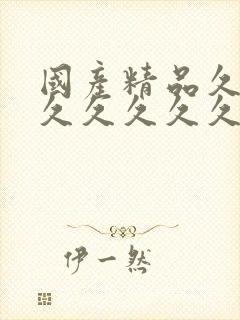 國產精品久
久久久久久
伊一然